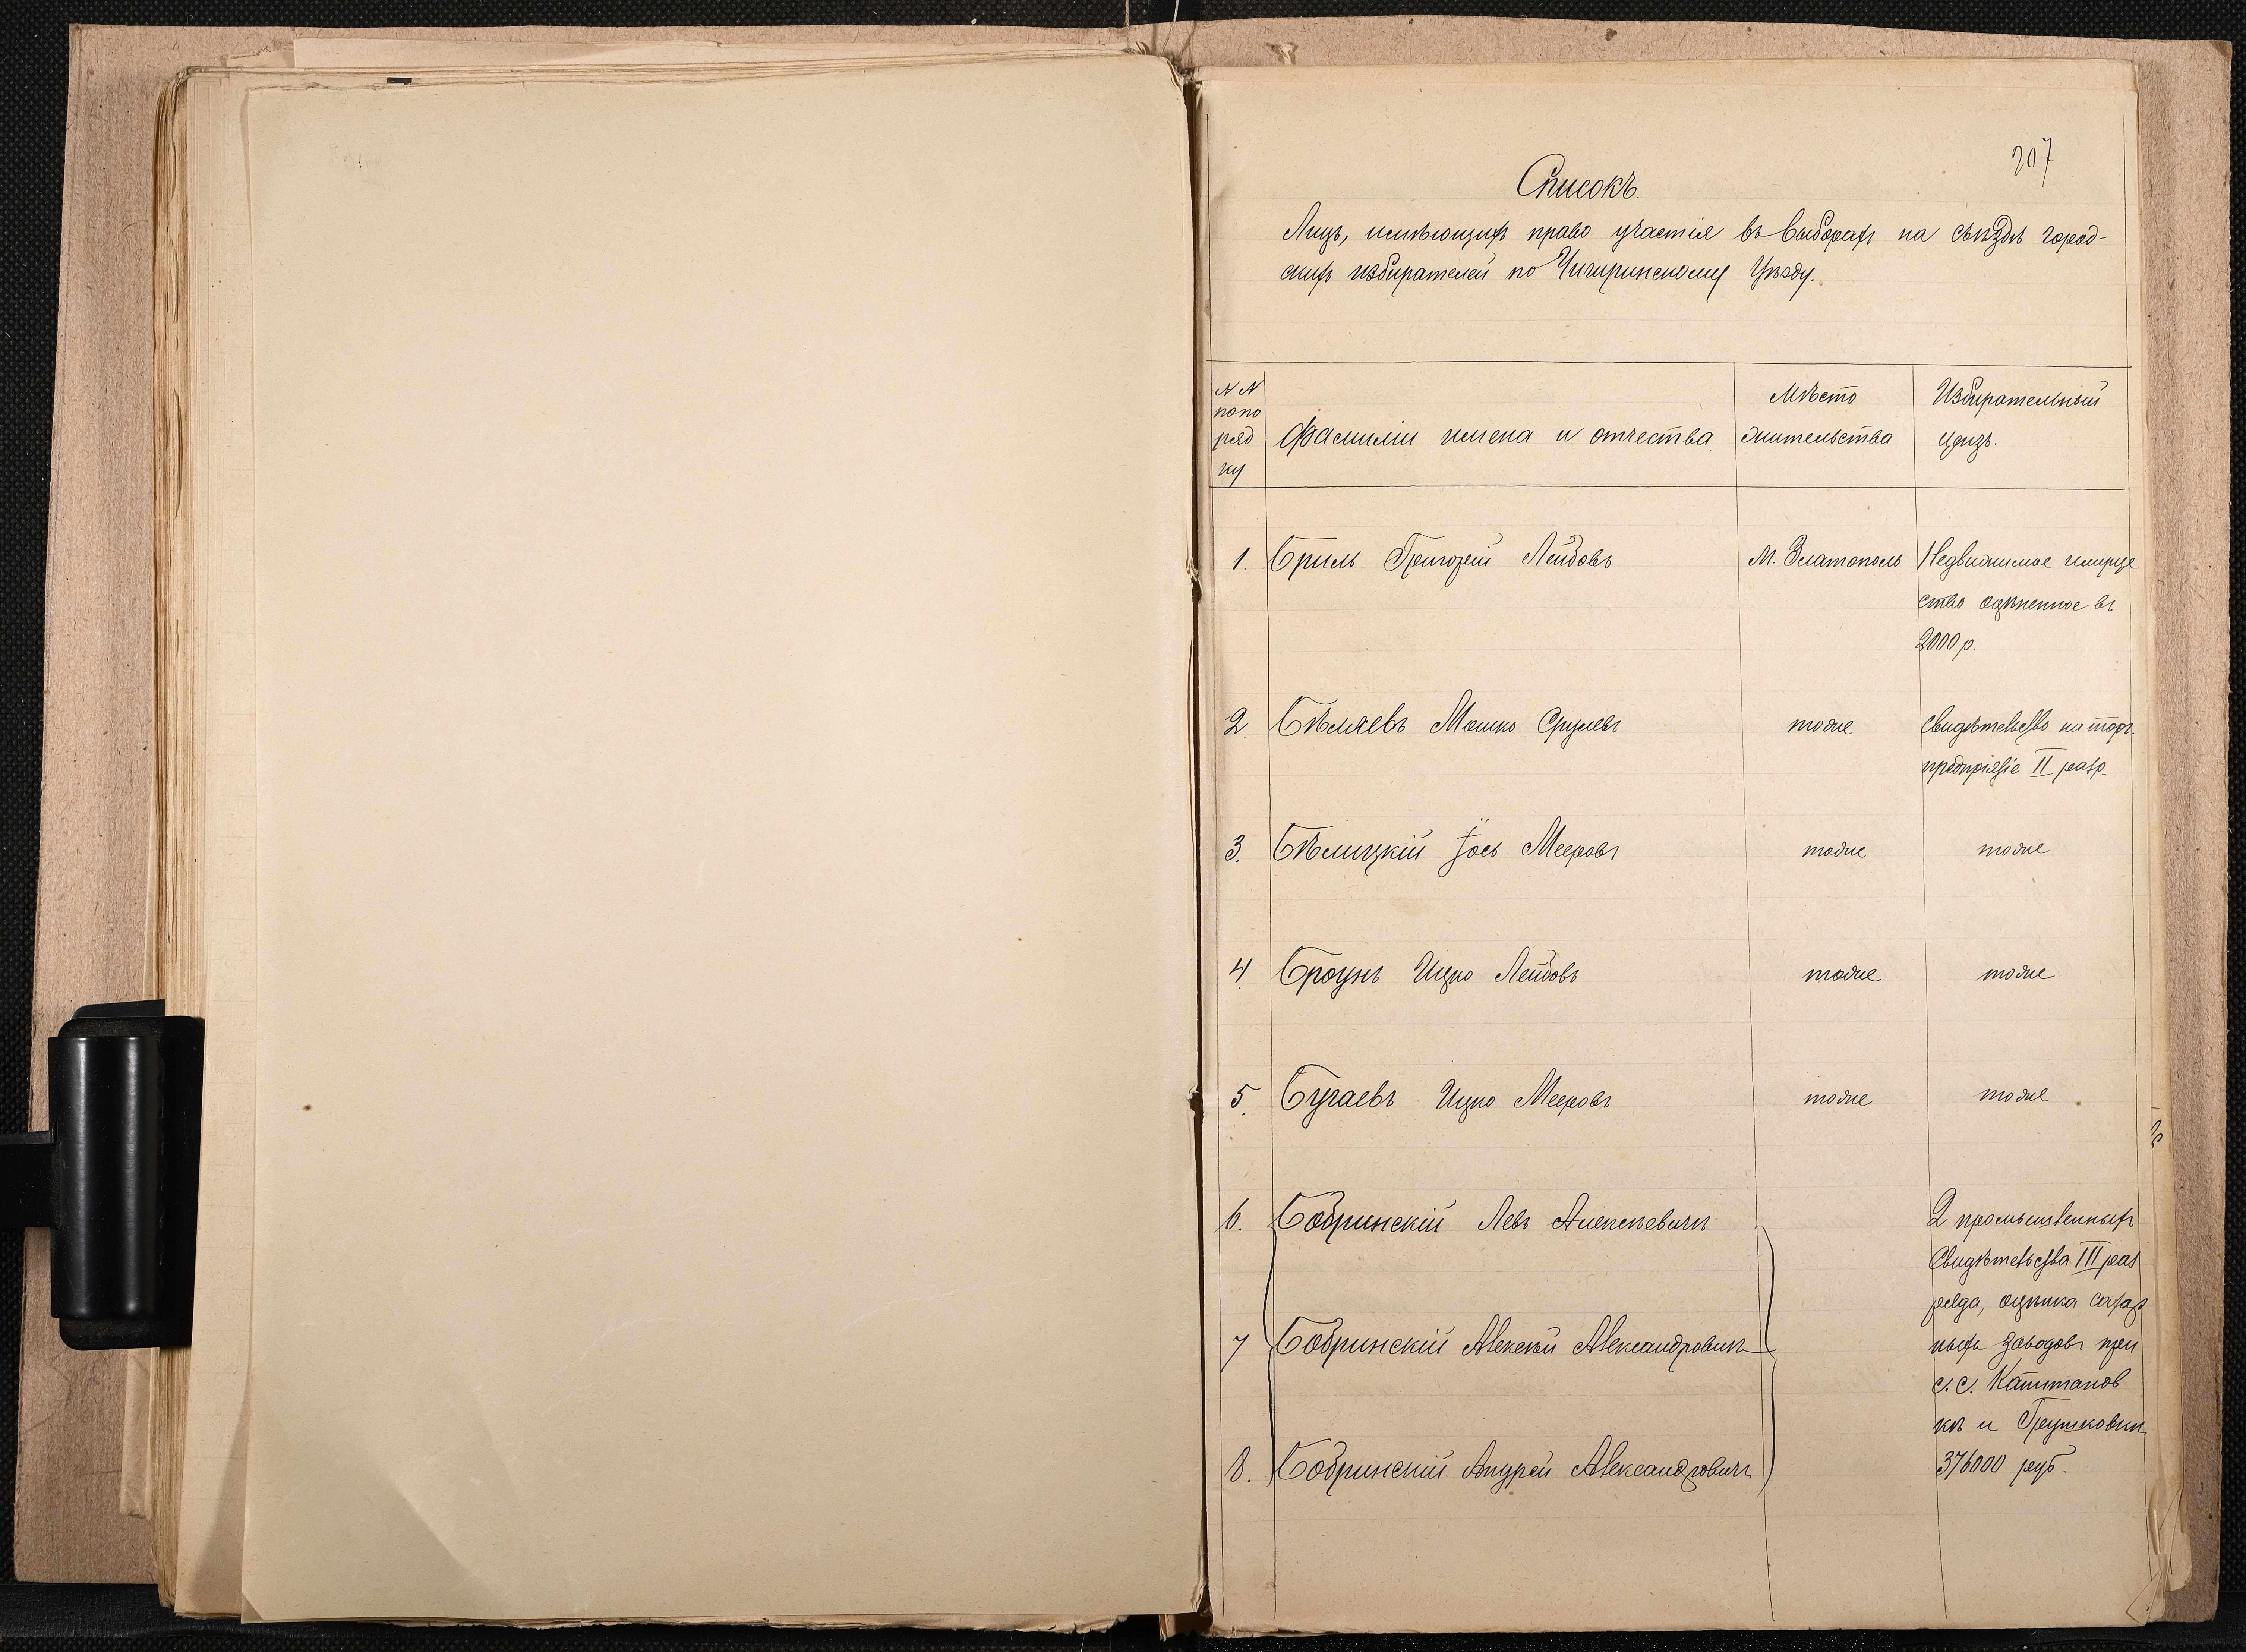 207
Списокъ.
Лицъ, имѣющихъ право участія въ выборахъ на съѣздѣ город-
скихъ избирателей по Чигиринскому уѣзду.
NN
попо
ряд
ку
Фамиліи имена и отчества
Мѣсто
жительства
Избирательный
цензъ.
1. Бриль Григорій Лейбовъ
М. Златополь
Недвижимое имуще
ство оцѣненное въ
2000 р.
2. Бѣляевъ Мошко Срулевъ
тоже
Свидѣтельство на торг.
предпріятіе II разр.
3. Бѣлицкій Іось Мееровъ
тоже
тоже
4. Броунъ Ицко Лейбовъ
тоже
тоже
5. Бугаевъ Ицко Мееровъ
тоже
тоже
6. Бобринскій Левъ Алексѣевичъ
7 Бобринскій Алексѣй Александровичъ
8. Бобринскій Андрей Александровичъ
2 промышленныхъ
Свидѣтельства III раз
ряда, оцѣнка сахар
ныхъ заводовъ при
с.с. Капитанов
кѣ и Грушковкѣ
376000 руб.